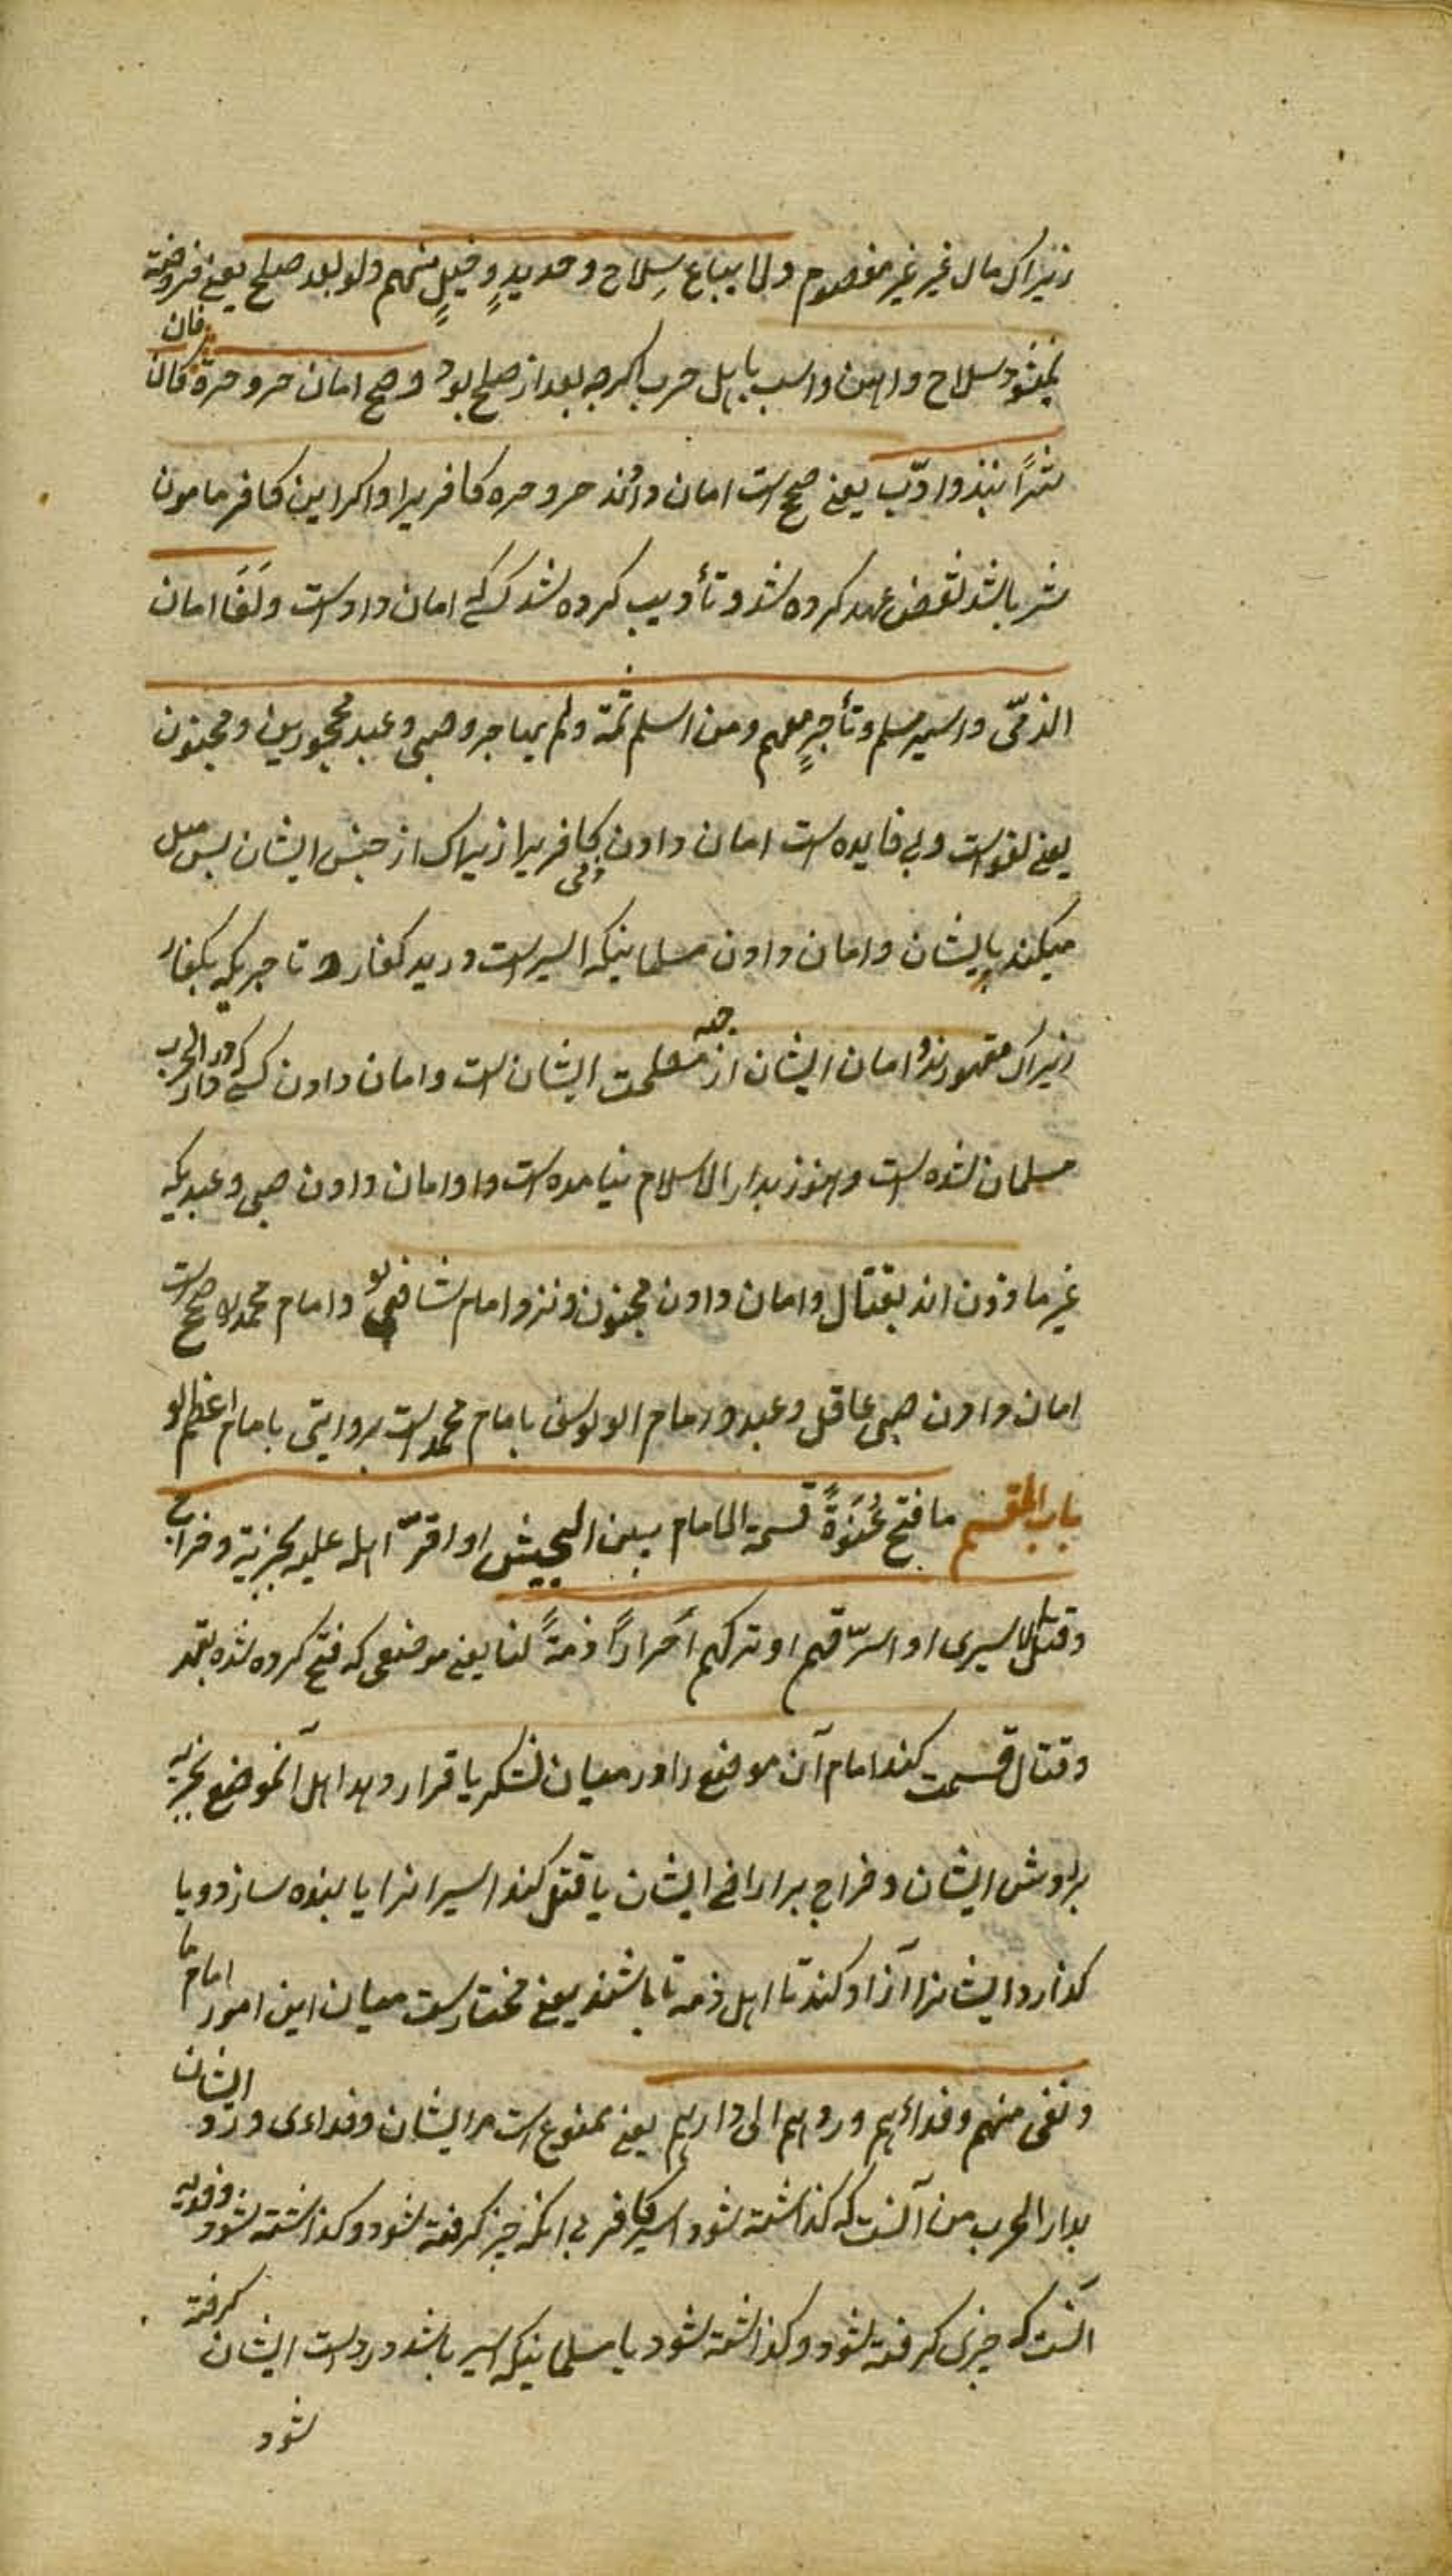 زیراک مال غیر غیر معصوم ولا یباع سِلاح وحدیدٍ وخیلٍ منهم ولو بعد صلح یعنی فروخته
نمیشود سلاح واهن واسب باهل حرب اکرچه بعد از صلح بود وصح امان حر وحرة فان کان
شرًا نبذ وادّب یعنی صحیح است امان دادن حر وحره کافریرا واکر این کافر مامون
شر باشد نقض عهد کرده شد وتأدیب کرده شد کسی که امان داداست ولَغَا امان
الذمّی واسیر مسلم وتأجرٍ معهم ومن اسلم ثمة ولم یهاجر وصبی وعبد محجورین ومجنون
یعنی لغو است وبی فایده است امان دادن ذمی کافریرا زیراک از جنس ایشان بس میل
میکند بایشان وامان دادن مسلمانیکه اسیر است در ید کفار وتاجریکه بکفار
زیراک مقهورند وامان ایشان از جهة مصلحت ایشان است وامان دادن کسی که در دار الحرب
مسلمان شده است وهنوز بدار الاسلام نیامده است وامان دادن صبی وعبدیکه
غیر ماذون اند بقتال وامان دادن مجنون ونزد امام شافعی و امام محمد صحیح است
امان دادن صبی عاقل وعبد وامام ابو یوسف با امام محمد است بروایتی با امام اعظم
باب المقسم ما فتح عُنوَةً قسمة الامام بین الجیش او اقرّ اهله علیه بجزیة وخراج
وقتل الاسیری او استرّقهم او ترکهم أحرارًا ذمةً لنا یعنی موضعی که فتح کرده شده بقهر
وقتال قسمت کند امام آن موضع را در میان لشکر یا قرار دهد اهل آنموضع بجزیه
بر اوش ایشان وخراج بر اراضی ایشان یا قتل کند اسیرانرا یا بنده سازد ویا
کذارد ایشانرا آزاد کند تا اهل ذمه تا باشند یعنی مختار است میان این امور امام ما
ونفی منهم وفدائهم وردهم الی دارهم یعنی ممنوع است مر ایشان وفداءی ورد ایشان
بدار الحرب من آنست که کذاشته شود اسیر کافر بی انکه چیز کرفته شود وکذاشته شود وفدیه
آنست که چیزی کرفته شود وکذاشته شود یا مسلمانیکه اسیر باشد در دست ایشان کرفته
شود